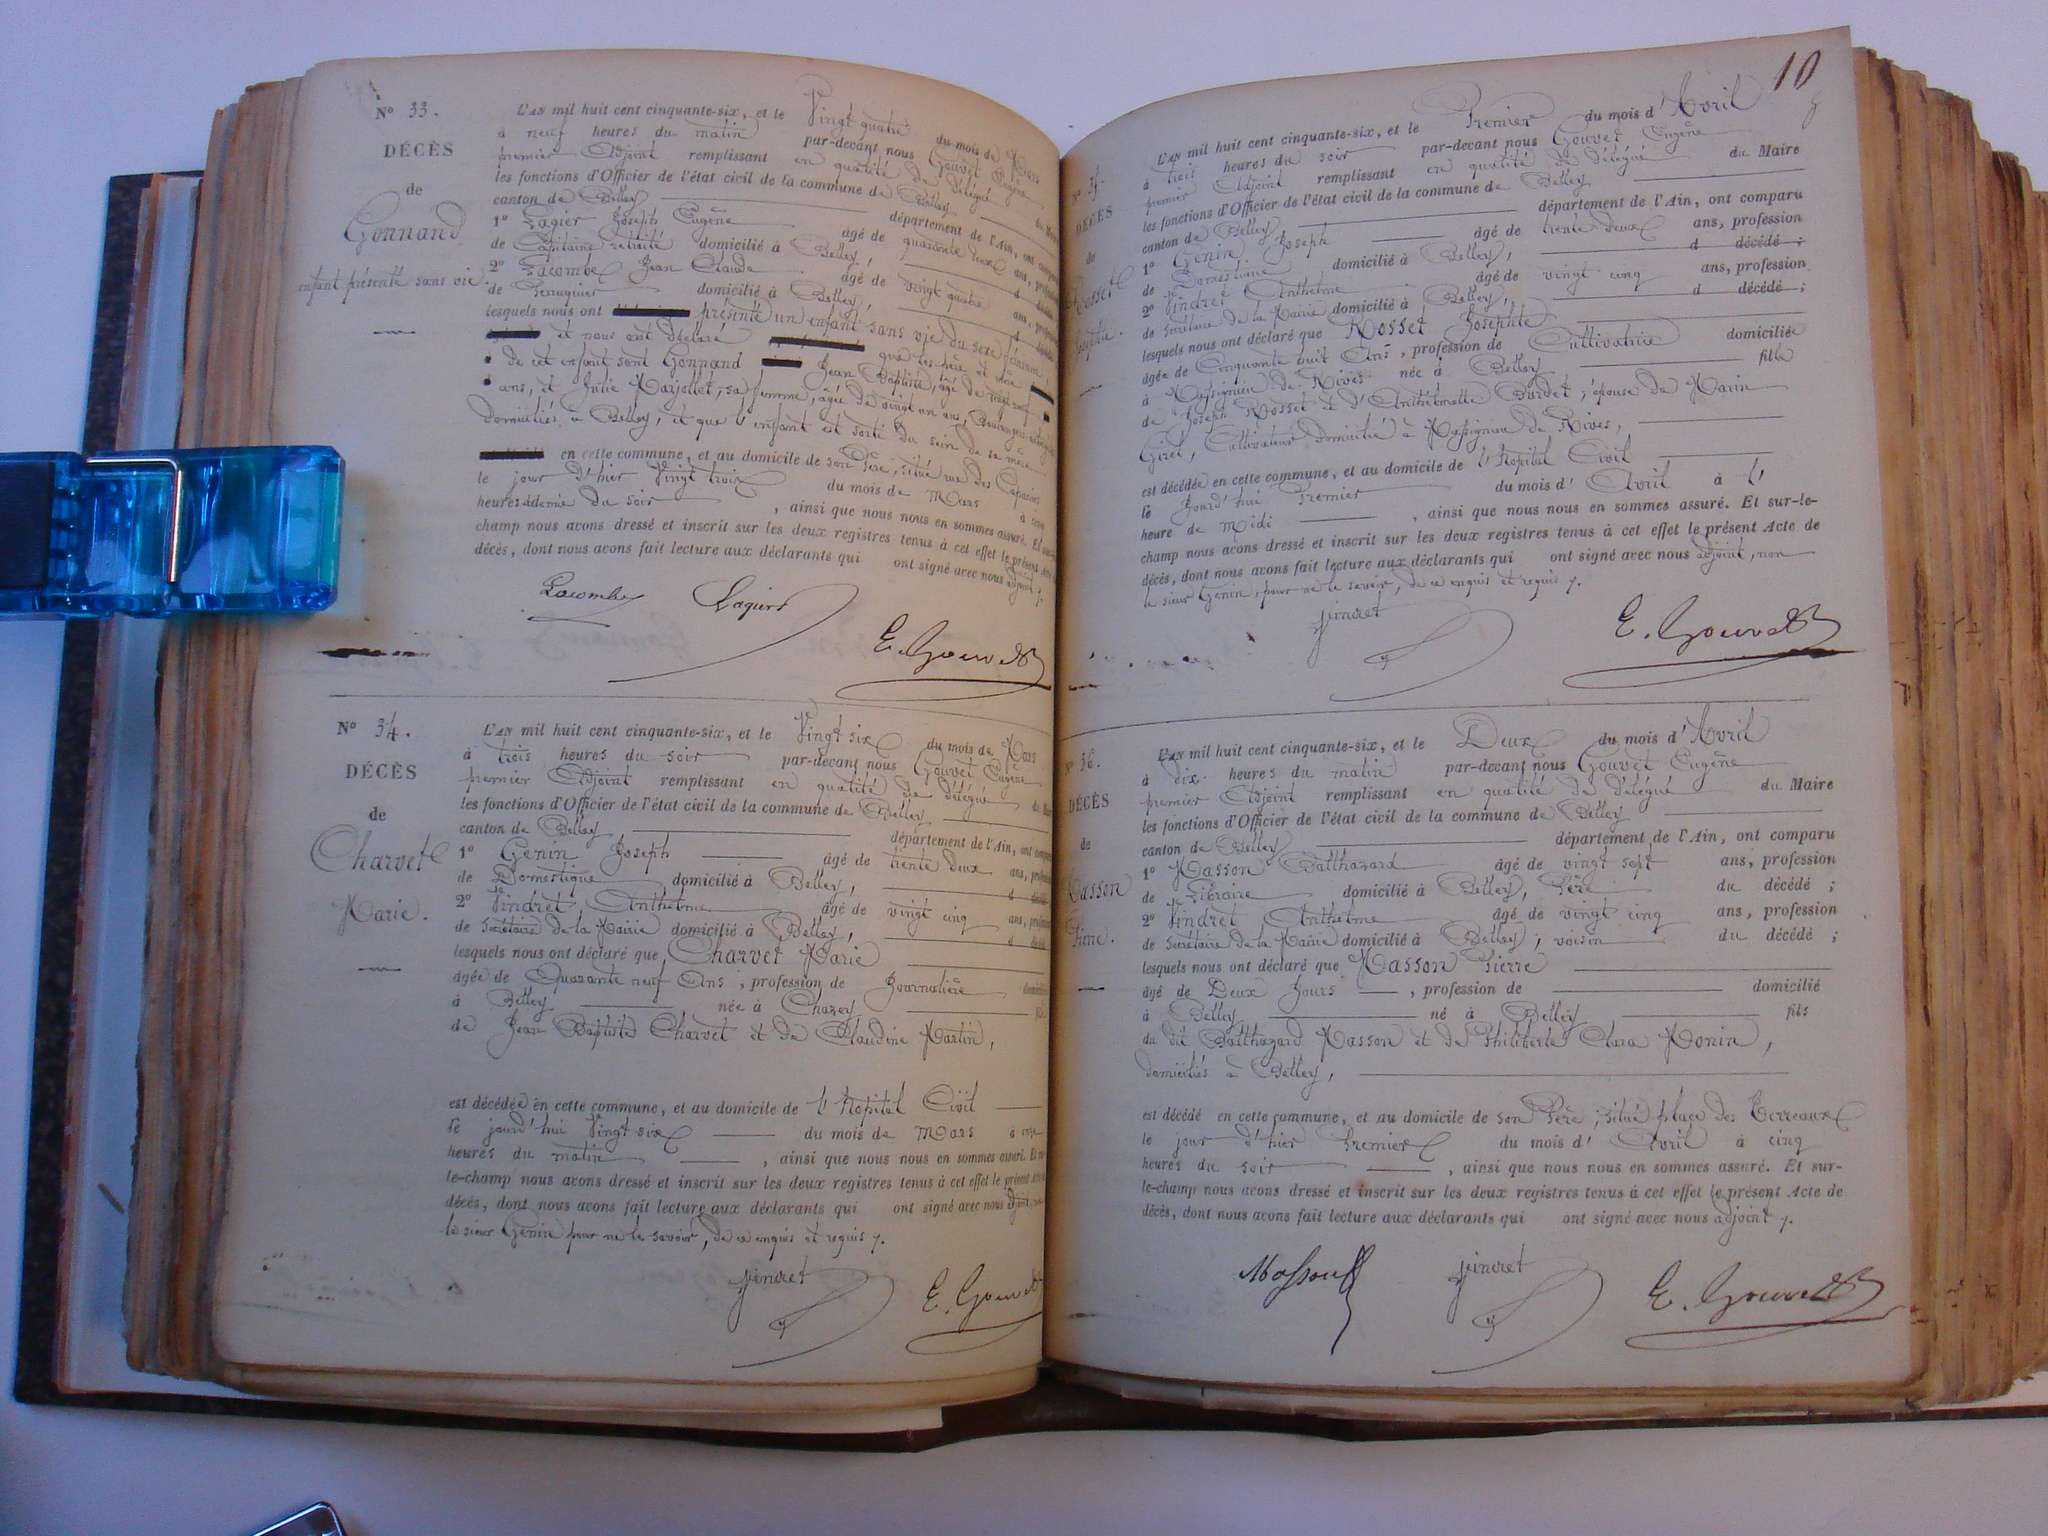 N° 33.
DÉCÈS
de
Gonnand
enfant présenté sans vie.
L'AN mil huit cent cinquante-six, et le Vingt quatre du mois de Mars
à neuf heures du matin par-devant nous Gouvet Eugène
premier Adjoint remplissant en qualité de délégué
les fonctions d'Officier de l'état civil de la commune de Belley
canton de Belley département de l'Ain, ont
1° Joseph Eugène âgé de quarante deux ans,
de Capitaine retraité domicilié à Belley,
2° Lacombe Jean Claude âgé de vingt quatre ans,
de domicilié à Belley,
lesquels nous ont présenté un enfant sans vie du sexe
et nous ont déclaré que les père et mère
de cet enfant sont Gonnand Jean Baptiste, âgé de
ans, et Julie Marjollet, sa femme, âgée de vingt un ans,
domiciliés à Belley, et que l'enfant est sorti du sein de sa mère
en cette commune, et au domicile de son Père, situé rue des
le jour d'hier Vingt trois du mois de Mars à
heures & demie du soir, ainsi que nous nous en sommes assuré. Et
champ nous avons dressé et inscrit sur les deux registres tenus à cet effet le présent Acte
décès, dont nous avons fait lecture aux déclarants qui ont signé avec nous adjoint
Lacombe
E. Gouvet
N° 34.
DÉCÈS
de
Charvet
Marie.
L'AN mil huit cent cinquante-six, et le Vingt six du mois de Mars
à trois heures du soir par-devant nous Gouvet Eugène
premier Adjoint remplissant en qualité de délégué
les fonctions d'Officier de l'état civil de la commune de Belley
canton de Belley département de l'Ain, ont
1° Genin Joseph âgé de trente deux ans,
de Domestique domicilié à Belley,
2° Vindret Anthelme âgé de vingt cinq ans,
de Secrétaire de la Mairie domicilié à Belley,
lesquels nous ont déclaré que Charvet Marie
âgée de Quarante neuf Ans, profession de Journalière
à Belley née à Chazey
de Jean Baptiste Charvet et de Claudine Martin,
est décédée en cette commune, et au domicile de l'Hôpital Civil
le jourd'hui Vingt six du mois de Mars à
heures du matin, ainsi que nous nous en sommes assuré. Et
le-champ nous avons dressé et inscrit sur les deux registres tenus à cet effet le présent
décès, dont nous avons fait lecture aux déclarants qui ont signé avec nous
le sieur Genin pour ne le savoir, de ce enquis et requis
Vindret
E. Gouvet
10
N°
DÉCÈS
de
Rosset
Josephte.
L'AN mil huit cent cinquante-six, et le Premier du mois d'Avril
à trois heures du soir par-devant nous Gouvet Eugène
premier Adjoint remplissant en qualité de délégué du Maire
les fonctions d'Officier de l'état civil de la commune de Belley
canton de Belley département de l'Ain, ont comparu
1° Genin Joseph âgé de trente deux ans, profession
de Domestique domicilié à Belley, d décédé ;
2° Vindret Anthelme âgé de vingt cinq ans, profession
de Secrétaire de la Mairie domicilié à Belley, d décédé ;
lesquels nous ont déclaré que Rosset Josephte
âgée de Cinquante huit Ans, profession de Cultivatrice domiciliée
à Massignieu de Rives née à Belley fille
de Joseph Rosset et d'Anthelmette Burdet, épouse de Marin
Girel, Cultivateur domicilié à Massignieu de Rives,
est décédée en cette commune, et au domicile de l'Hôpital Civil
le jourd'hui Premier du mois d'Avril à l'
heure de midi, ainsi que nous nous en sommes assuré. Et sur-le-
champ nous avons dressé et inscrit sur les deux registres tenus à cet effet le présent Acte de
décès, dont nous avons fait lecture aux déclarants qui ont signé avec nous adjoint, non
le sieur Genin pour ne le savoir, de ce enquis et requis
Vindret
E. Gouvet
N° 36.
DÉCÈS
de
Masson
L'AN mil huit cent cinquante-six, et le Deux du mois d'Avril
à dix heures du matin par-devant nous Gouvet Eugène
premier Adjoint remplissant en qualité de délégué du Maire
les fonctions d'Officier de l'état civil de la commune de Belley
canton de Belley département de l'Ain, ont comparu
1° Masson Balthazard âgé de vingt sept ans, profession
de Libraire domicilié à Belley, Père du décédé ;
2° Vindret Anthelme âgé de vingt cinq ans, profession
de Secrétaire de la Mairie domicilié à Belley, voisin du décédé ;
lesquels nous ont déclaré que Masson Pierre
âgé de Deux Jours, profession de domicilié
à Belley né à Belley fils
du dit Balthazard Masson et de Philiberte Clara Monin,
domiciliés à Belley,
est décédé en cette commune, et au domicile de son Père, situé place des Terreaux
le jour d'hier Premier du mois d'Avril à cinq
heures du soir, ainsi que nous nous en sommes assuré. Et sur-
le-champ nous avons dressé et inscrit sur les deux registres tenus à cet effet le présent Acte de
décès, dont nous avons fait lecture aux déclarants qui ont signé avec nous adjoint
Masson
Vindret
E. Gouvet